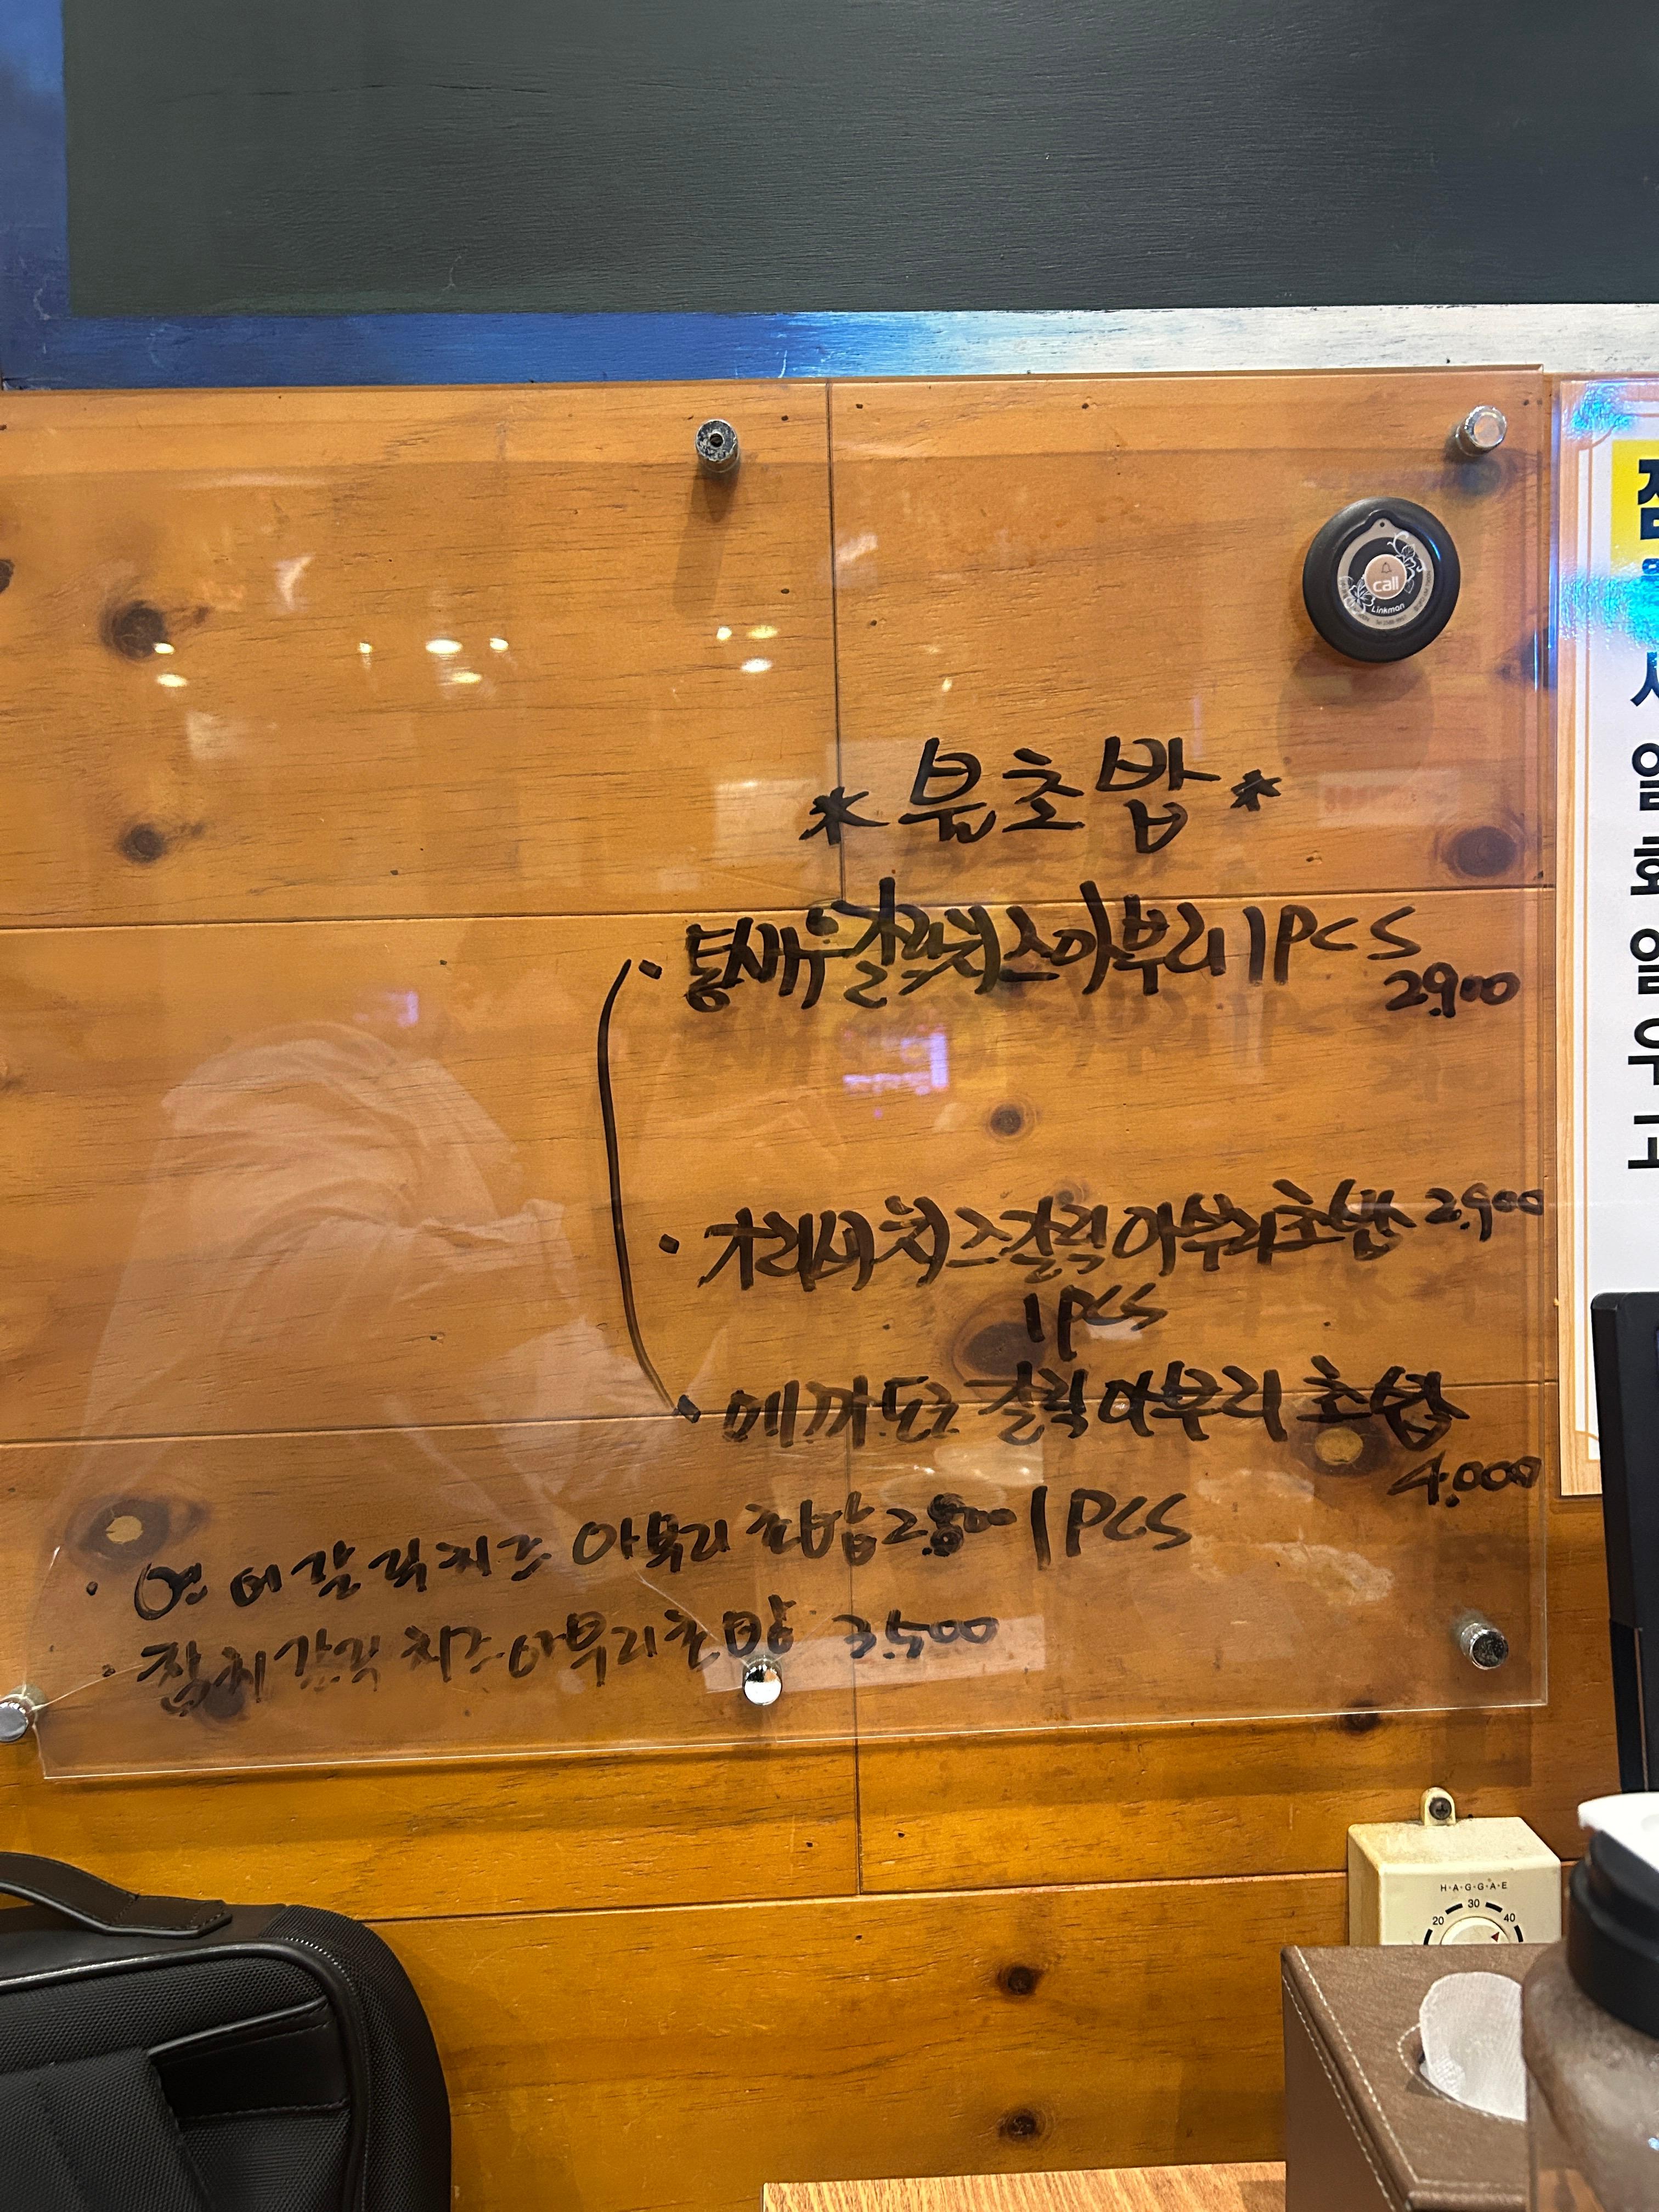 *븜초밥*
· 통새우갈릭치즈아부리 1PCS
2.900
· 가리비치즈갈릭아부리초밥 2.900
1PCS
· 메까도로 갈릭아부리 초밥
4.000
· 연어갈릭치즈 아부리 초밥 2.800 1PCS
· 참치갈릭 치즈아부리초밥 3.500
call
Linkman
일
요
일
HAGGAE
20 30 40